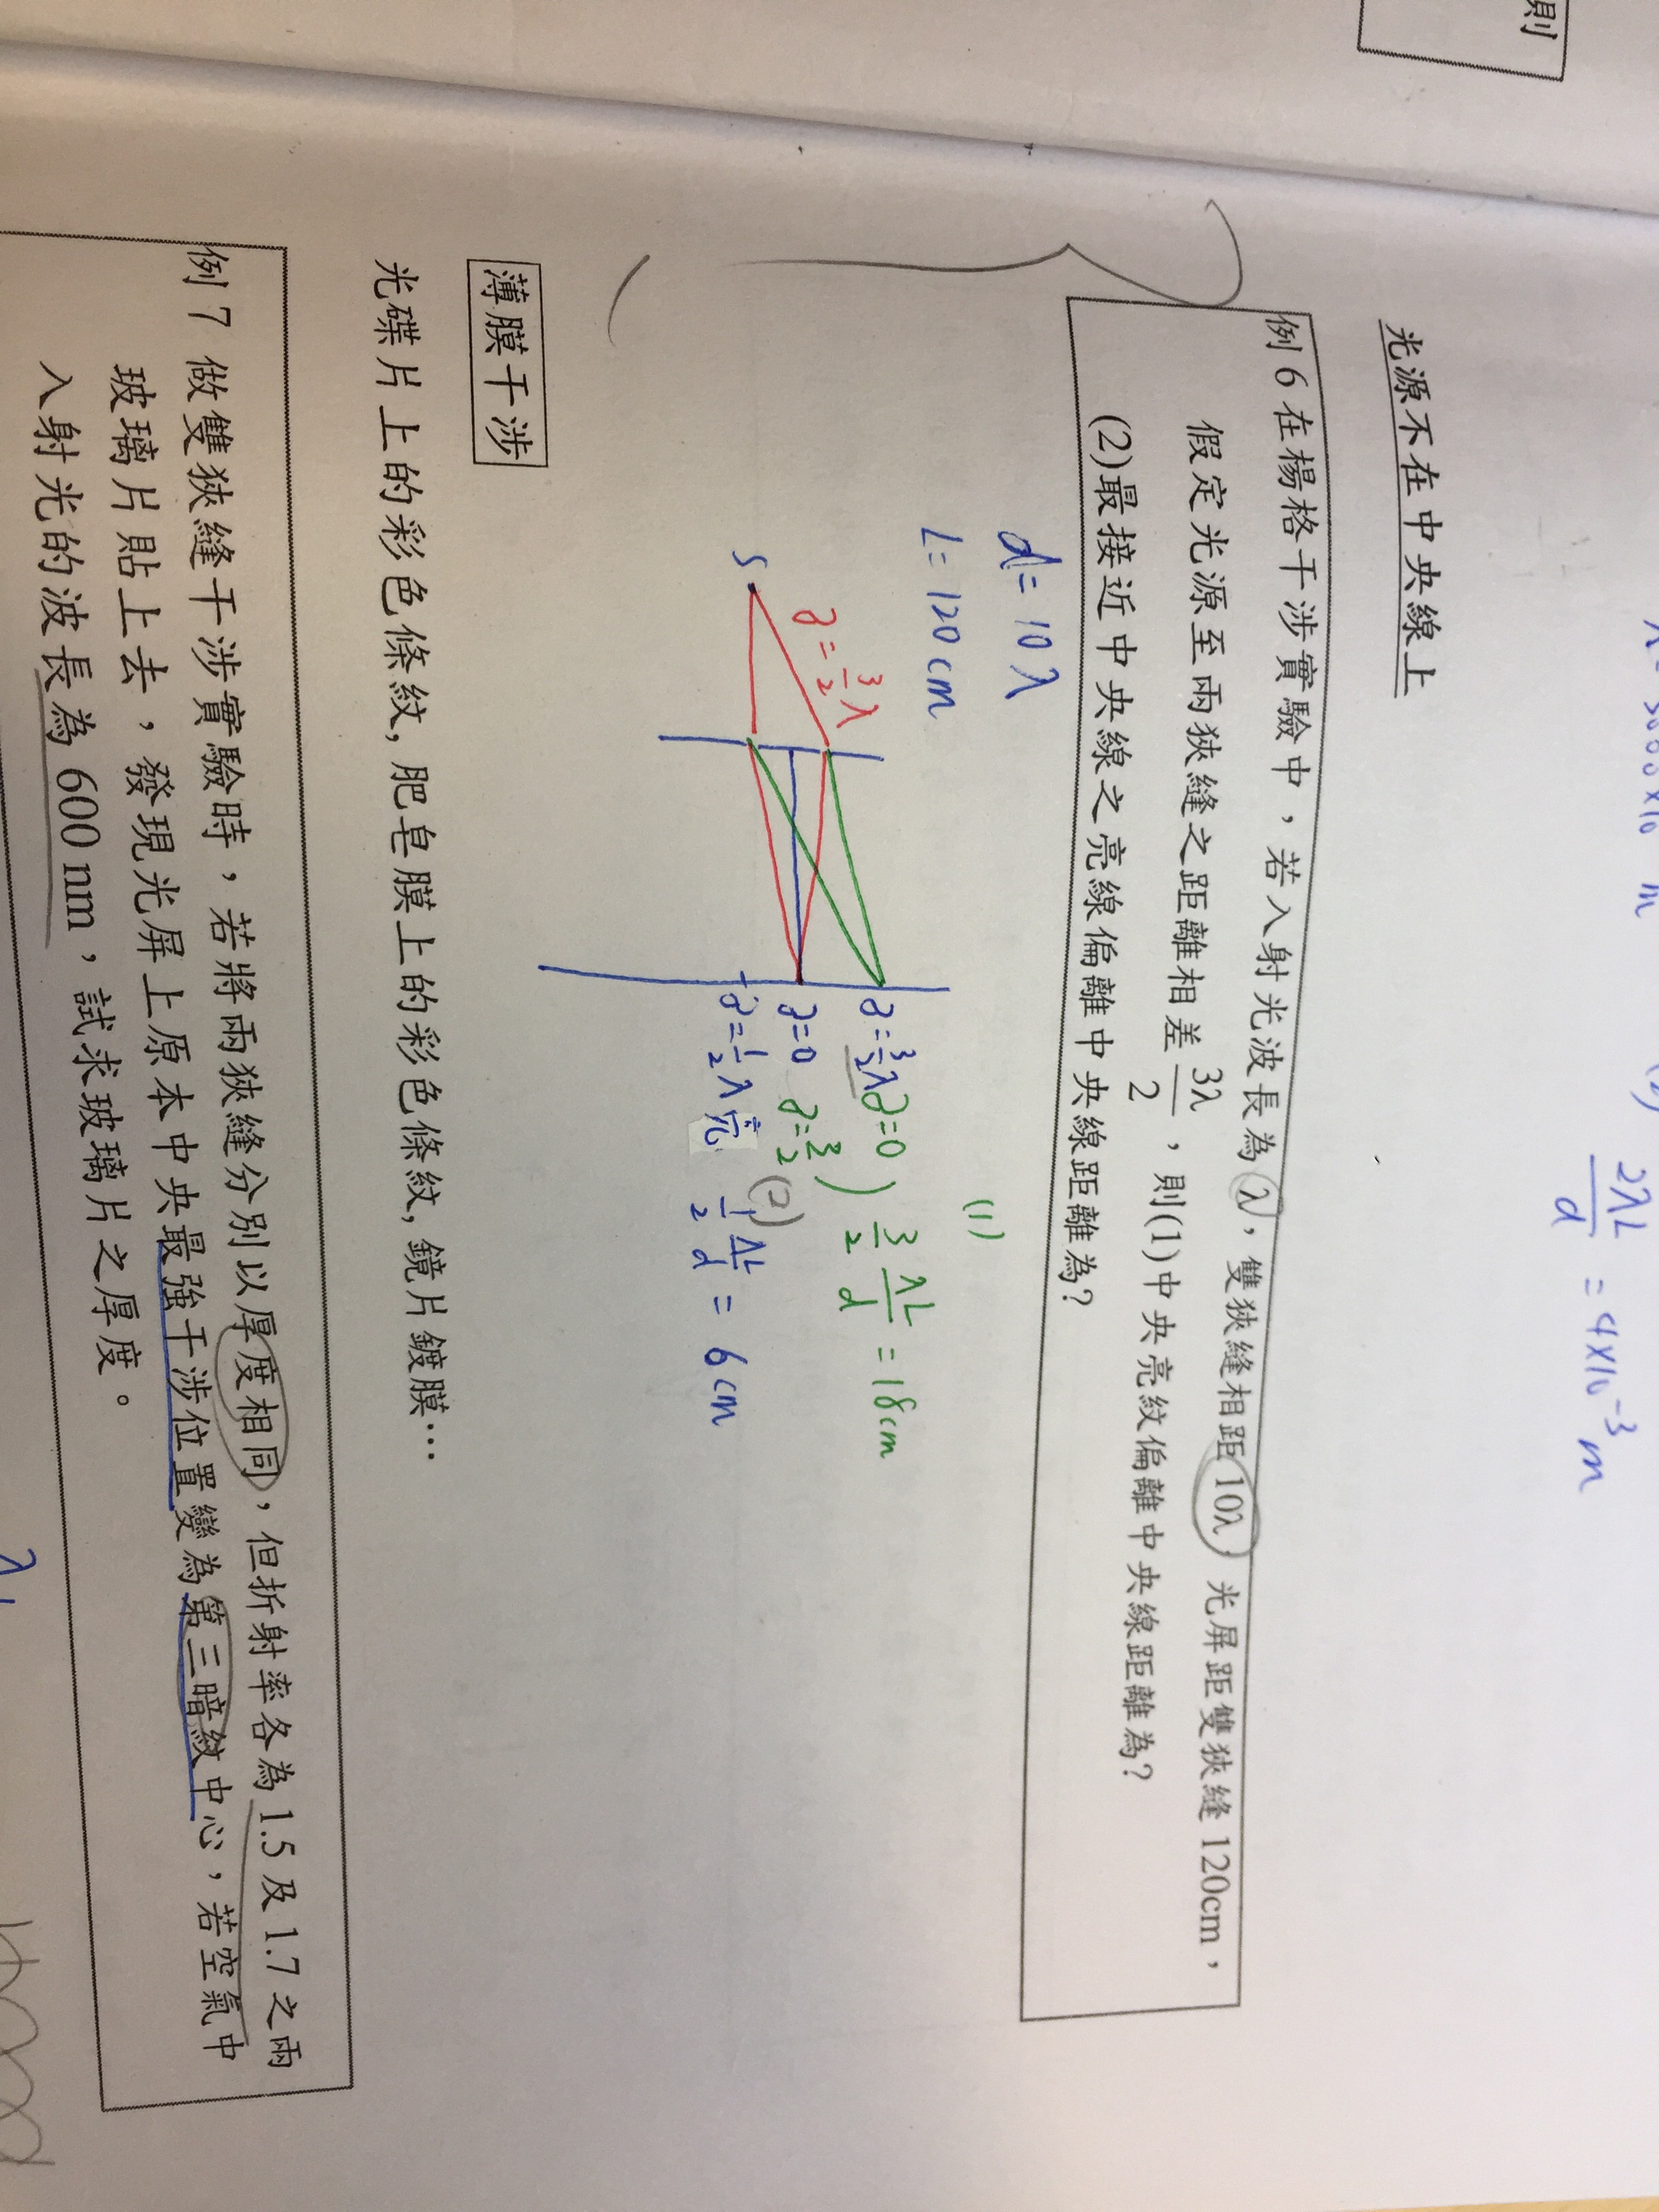 則
2λL/d = 4×10⁻³ m
光源不在中央線上
例 6 在楊格干涉實驗中，若入射光波長為λ，雙狹縫相距10λ，光屏距雙狹縫120cm，
假定光源至兩狹縫之距離相差 3λ/2 ，則(1)中央亮紋偏離中央線距離為?
(2)最接近中央線之亮線偏離中央線距離為?
d = 10λ
L = 120 cm
(1)
∂ = 3/2 λ
∂ = 3/2 λ ∂ = 0
3/2 λL/d = 18 cm
∂ = 0 ∂ = 3/2
(2)
S
∂ = 1/2 λ 亮 1/2 λL/d = 6 cm
薄膜干涉
光碟片上的彩色條紋, 肥皂膜上的彩色條紋, 鏡片鍍膜…
例 7 做雙狹縫干涉實驗時，若將兩狹縫分別以厚度相同，但折射率各為 1.5 及 1.7 之兩
玻璃片貼上去，發現光屏上原本中央最強干涉位置變為第三暗紋中心，若空氣中
入射光的波長為 600 nm，試求玻璃片之厚度。